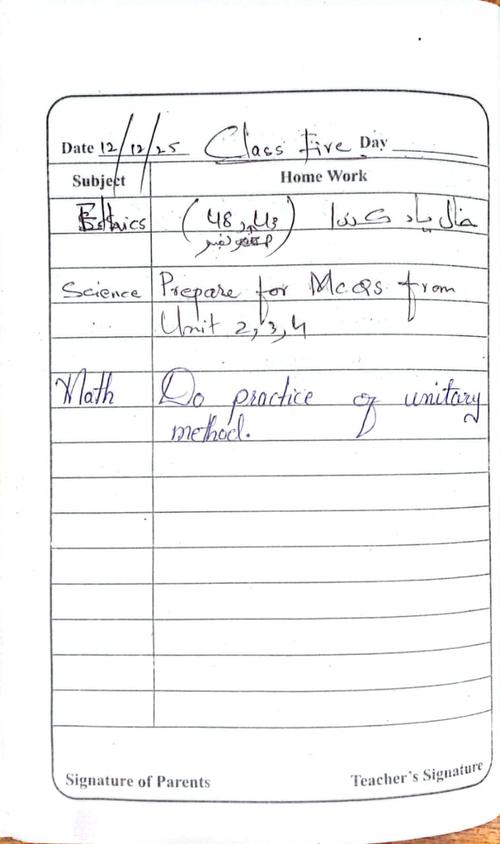 Date 12/12/25 Class Five Day
Subject Home Work
Ethics خالی یاد کرنا (48,43)
صفحہ نمبر
Science Prepare for McQs from
Unit 2, 3, 4
Math Do practice of unitary
method.
Signature of Parents Teacher's Signature